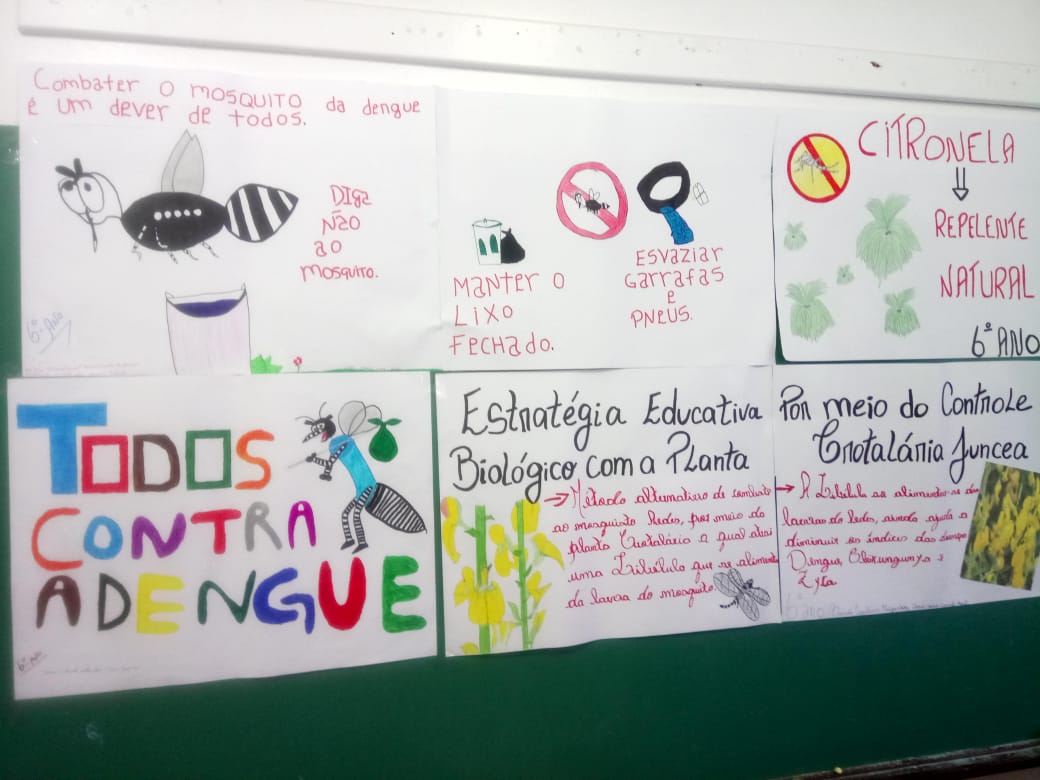 Combater o mosquito da dengue
é um dever de todos.
DIGA
NÃO
ao
mosquito.
6º Ano
Manter o
Lixo
fechado.
Esvaziar
garrafas
e
PNEUS.
CITRONELA
REPELENTE
NATURAL
6º ANO
TODOS
CONTRA
A DENGUE
6º Ano
Estratégia Educativa
Biológico com a Planta
Método alternativo de combate
ao mosquinto Aedes, por meio da
planta Crotalária a qual atrai
uma Libélula que se alimenta
da larva do mosquito.
Por meio do Controle
Crotalária Juncea
A Libélula se alimenta das
larvas do Aedes, ajuda a
diminuir os índices das
Dengue, Chikungunya e
Zyka